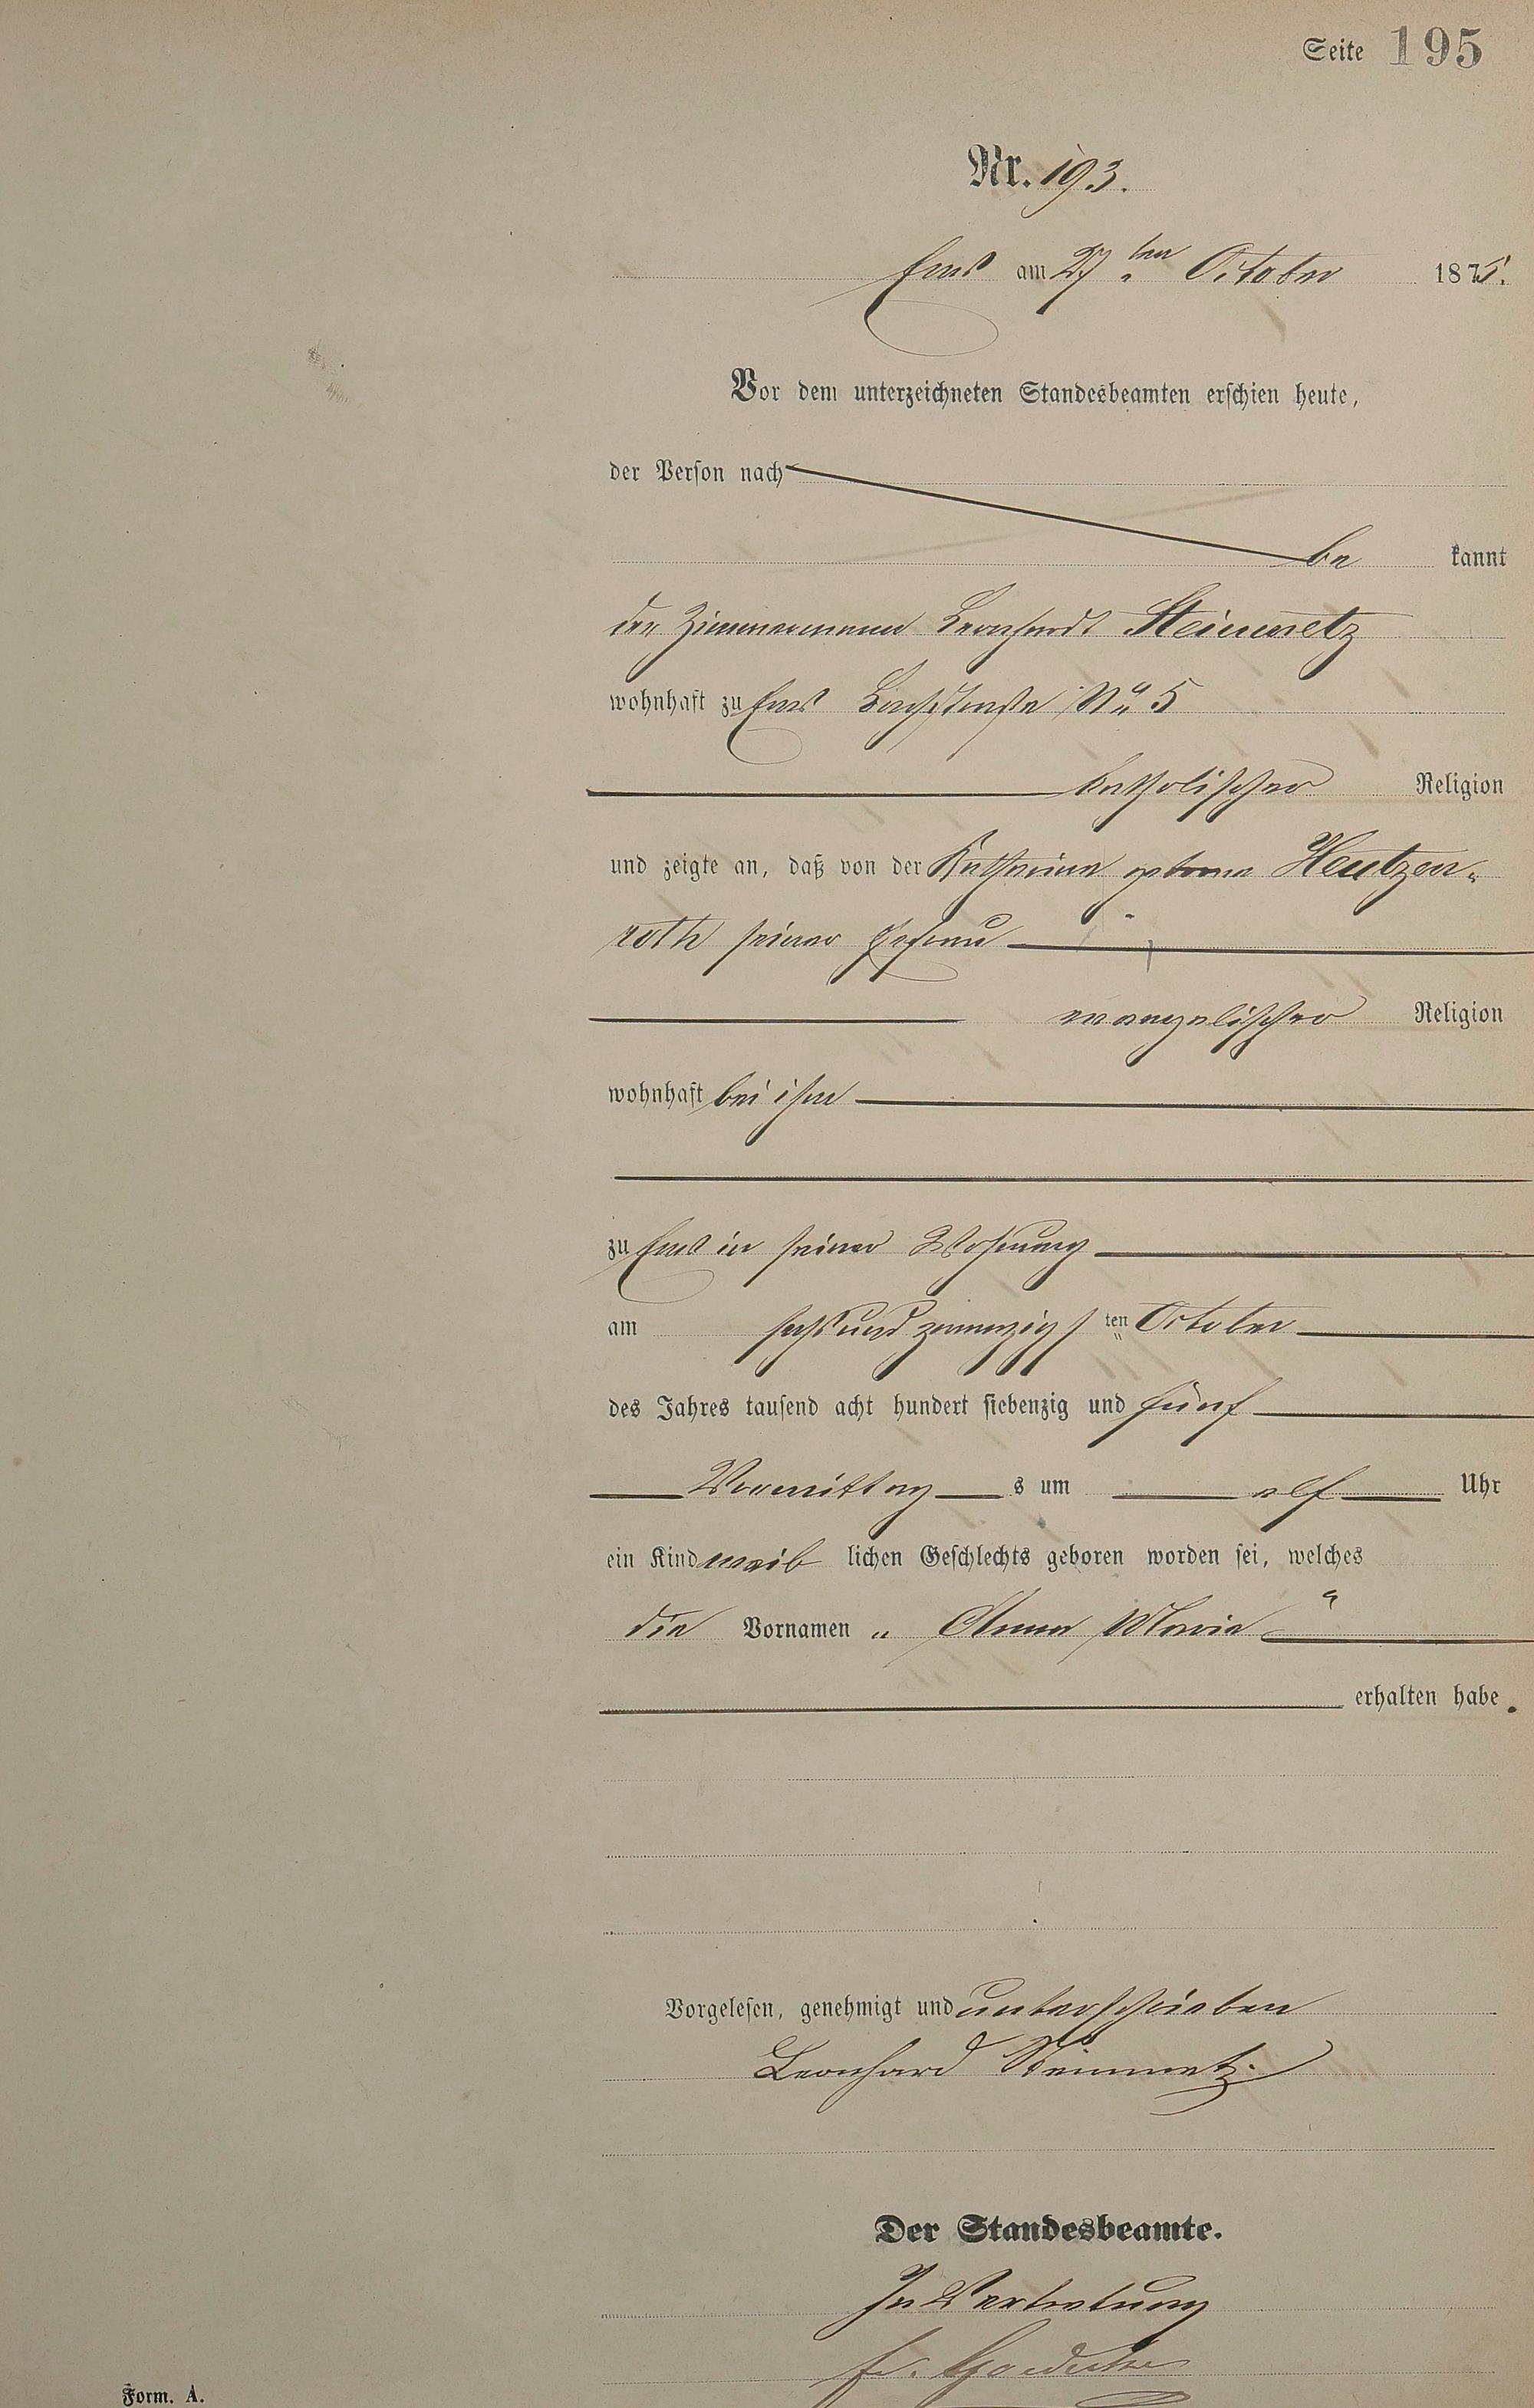 Seite 195
Nr. 193.
Ems am 27ten October 1875.
Vor dem unterzeichneten Standesbeamten erschien heute,
der Person nach
be kannt
der Zimmermann Leonhardt Steinmetz
wohnhaft zu Ems No 5
katholischer Religion
und zeigte an, daß von der Katharina geborne Heutzen-
roth seiner Ehefrau
evangelischer Religion
wohnhaft bei ihm
zu Ems in seiner Wohnung
am sechsundzwanzigsten October
des Jahres tausend acht hundert siebenzig und fünf
Vormittag s um elf Uhr
ein Kind weib lichen Geschlechts geboren worden sei, welches
die Vornamen „ Anna Maria “
erhalten habe.
Vorgelesen, genehmigt und unterschrieben
Leonhard Steinmetz.
Der Standesbeamte.
In Vertretung
Form. A.